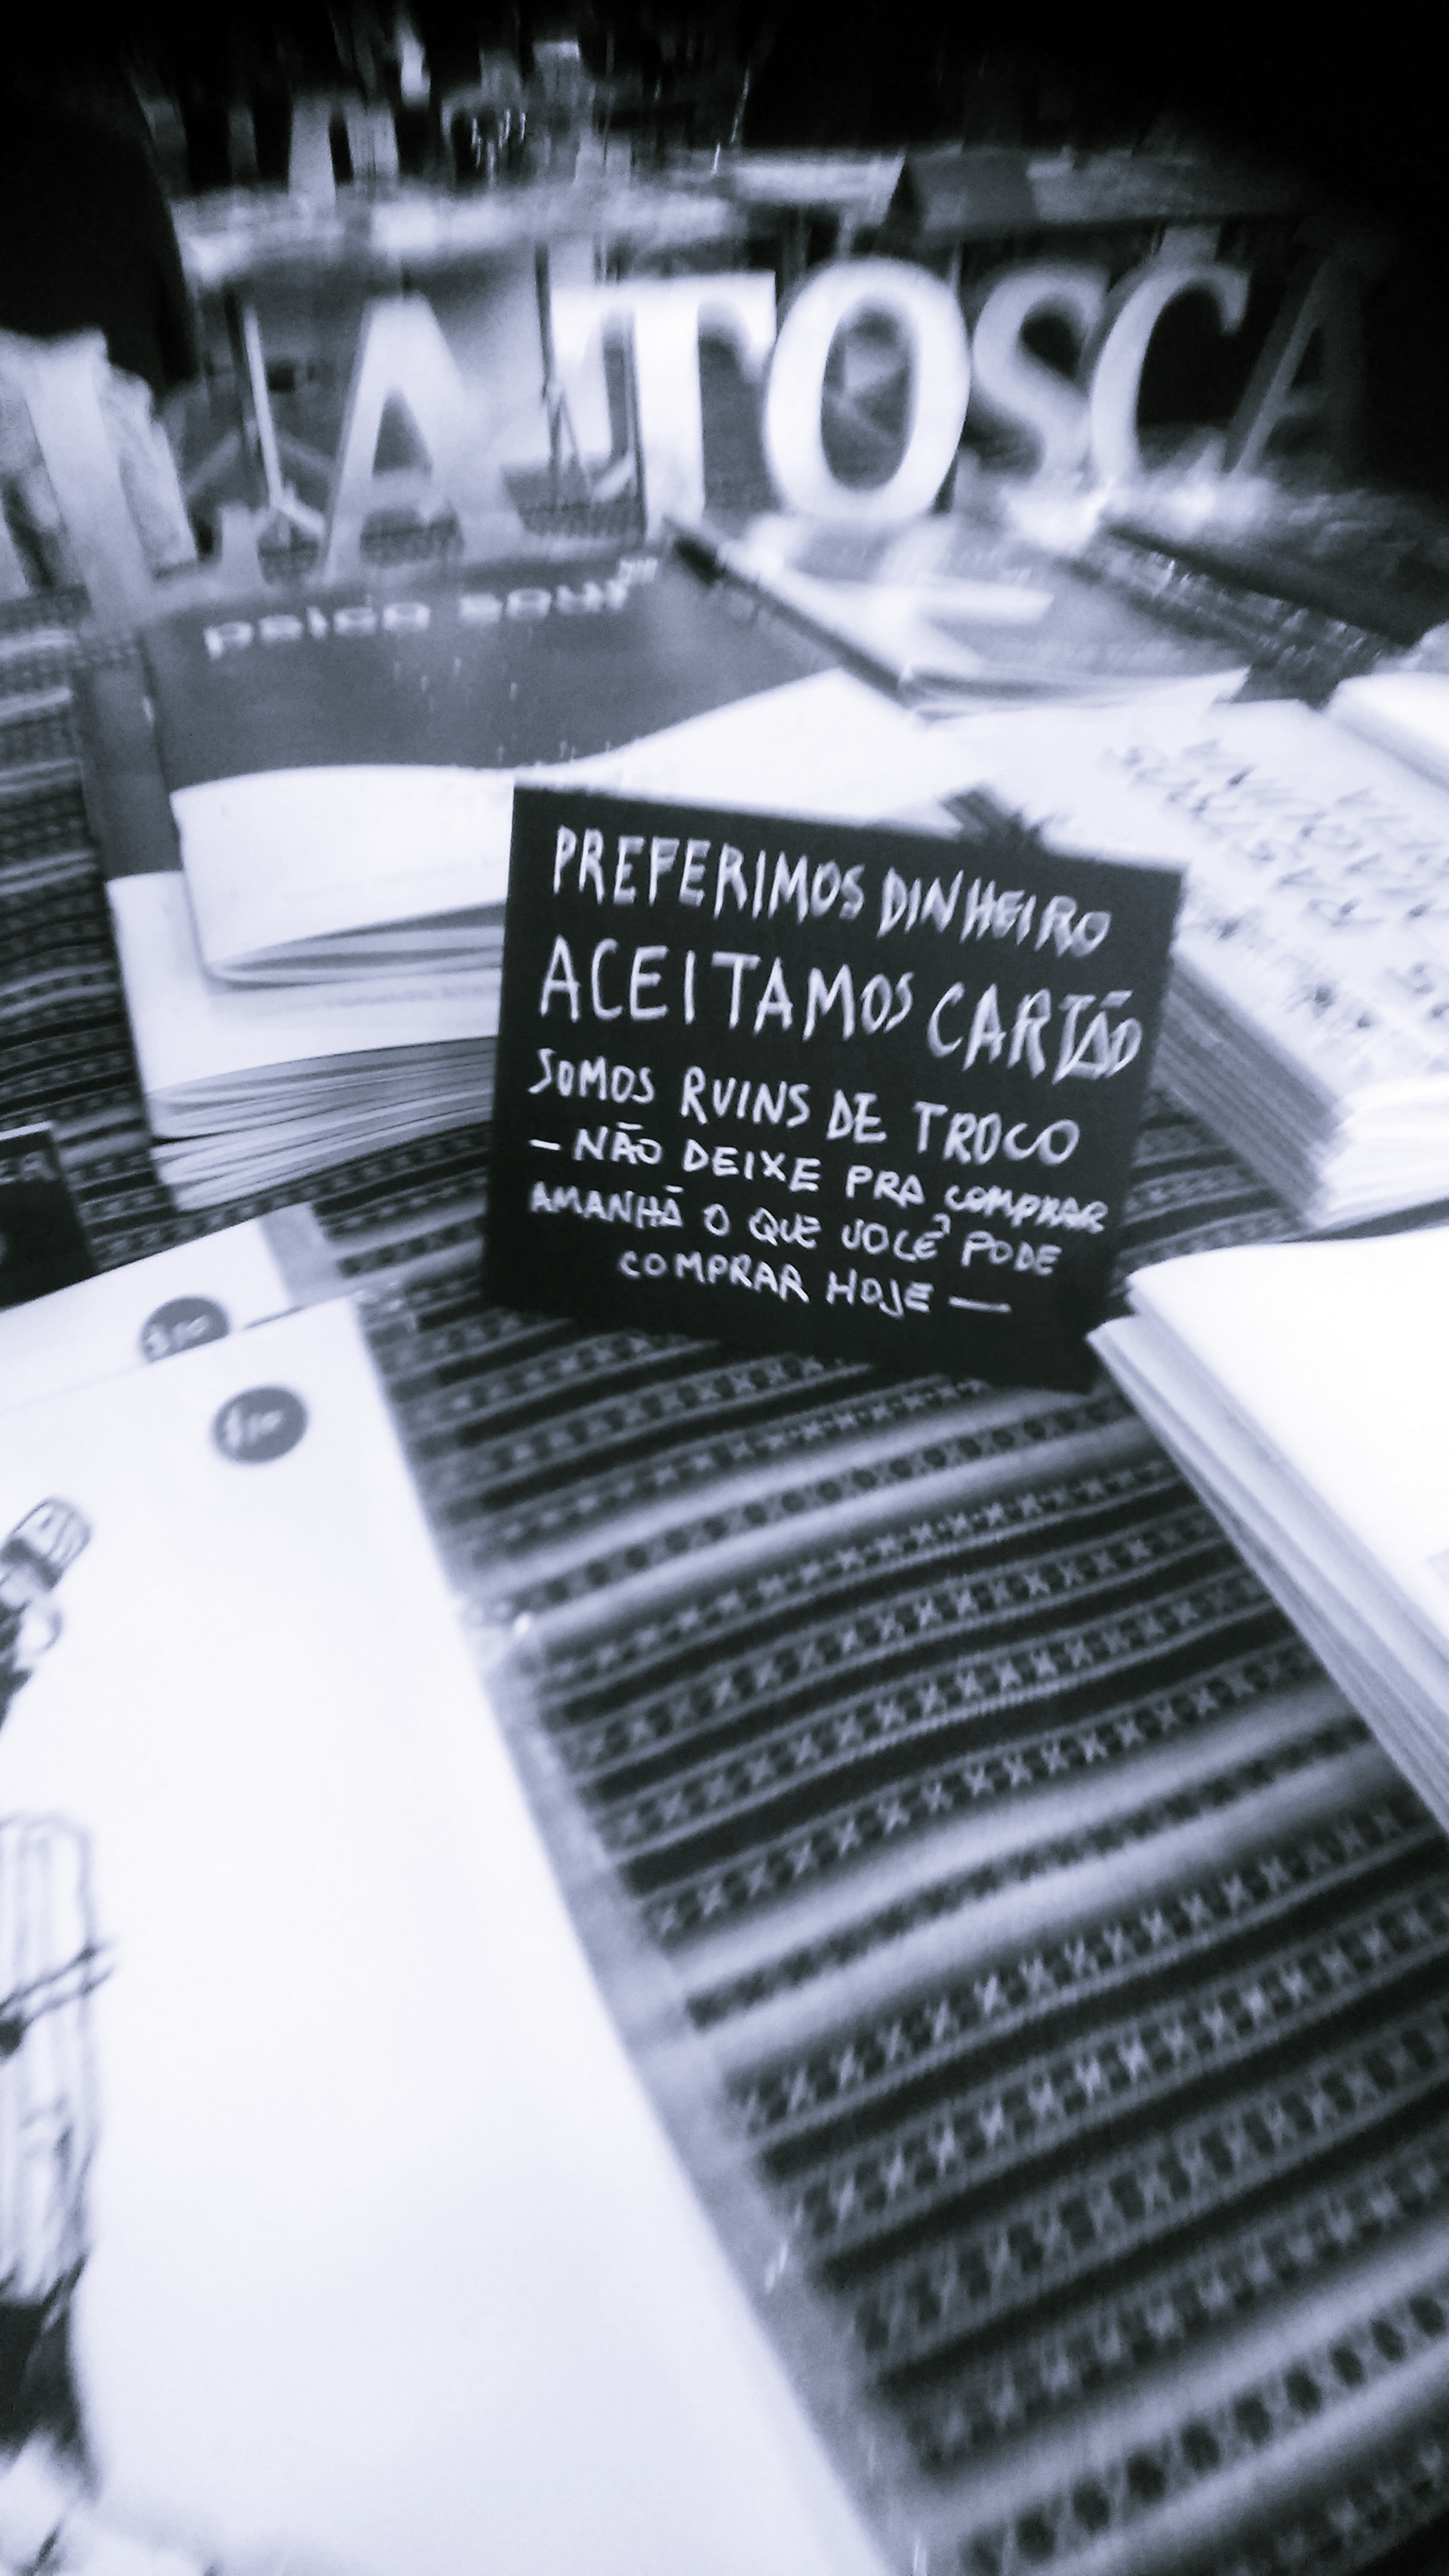 LA TOSCA
psico soul
PREFERIMOS DINHEIRO
ACEITAMOS CARTÃO
SOMOS RUINS DE TROCO
— NÃO DEIXE PRA COMPRAR
AMANHÃ O QUE VOCÊ PODE
COMPRAR HOJE —